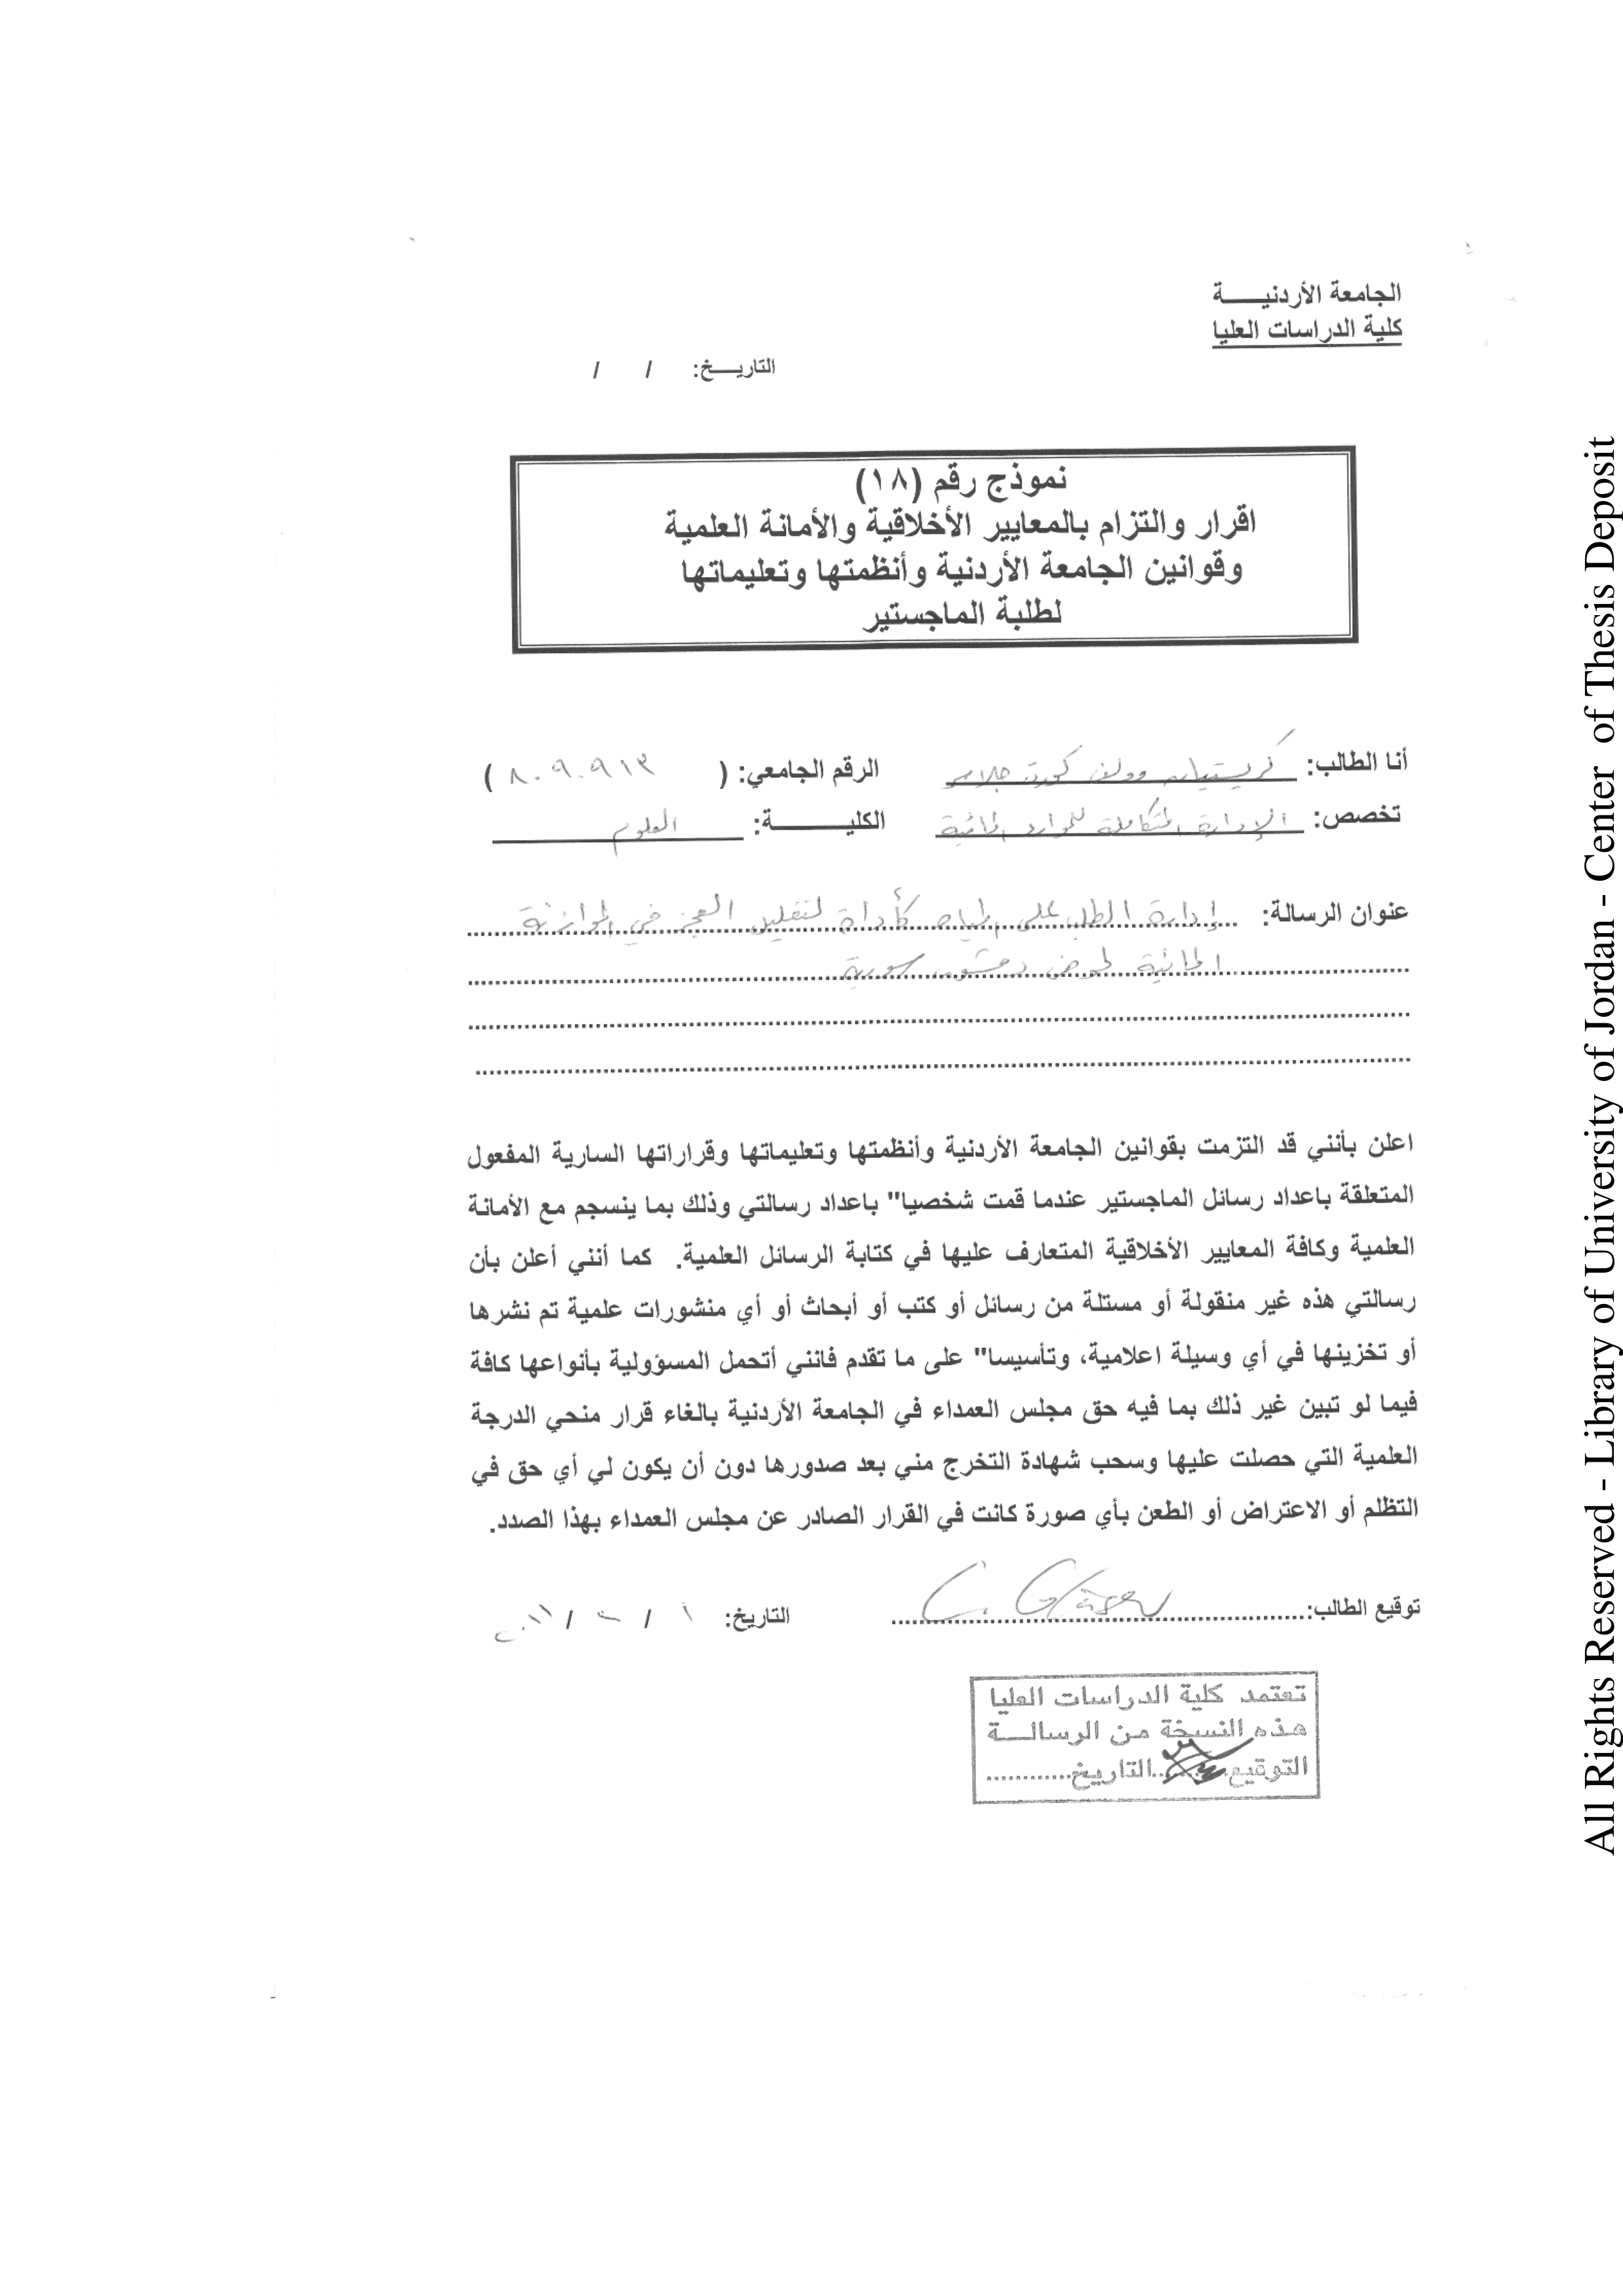 الجامعة الأردنيــــة
كلية الدراسات العليا
التاريـــخ: / /
نموذج رقم (١٨)
اقرار والتزام بالمعايير الأخلاقية والأمانة العلمية
وقوانين الجامعة الأردنية وأنظمتها وتعليماتها
لطلبة الماجستير
أنا الطالب: كريستيان وولف كورت جلاسر الرقم الجامعي: ( ٨٠٩٠٩١٣ )
تخصص: الإدارة المتكاملة للموارد المائية الكليــــــة: العلوم
عنوان الرسالة: إدارة الطلب على المياه كأداة لتقليل العجز في الموازنة
المائية لحوض دمشق، سورية
اعلن بأنني قد التزمت بقوانين الجامعة الأردنية وأنظمتها وتعليماتها وقراراتها السارية المفعول
المتعلقة باعداد رسائل الماجستير عندما قمت شخصيا" باعداد رسالتي وذلك بما ينسجم مع الأمانة
العلمية وكافة المعايير الأخلاقية المتعارف عليها في كتابة الرسائل العلمية. كما أنني أعلن بأن
رسالتي هذه غير منقولة أو مستلة من رسائل أو كتب أو أبحاث أو أي منشورات علمية تم نشرها
أو تخزينها في أي وسيلة اعلامية، وتأسيسا" على ما تقدم فانني أتحمل المسؤولية بأنواعها كافة
فيما لو تبين غير ذلك بما فيه حق مجلس العمداء في الجامعة الأردنية بالغاء قرار منحي الدرجة
العلمية التي حصلت عليها وسحب شهادة التخرج مني بعد صدورها دون أن يكون لي أي حق في
التظلم أو الاعتراض أو الطعن بأي صورة كانت في القرار الصادر عن مجلس العمداء بهذا الصدد.
توقيع الطالب: C. Gläser التاريخ: ١ / / ٢٠١١
تعتمد كلية الدراسات العليا
هذه النسخة من الرسالـــة
التوقيع........التاريخ............
All Rights Reserved - Library of University of Jordan - Center of Thesis Deposit